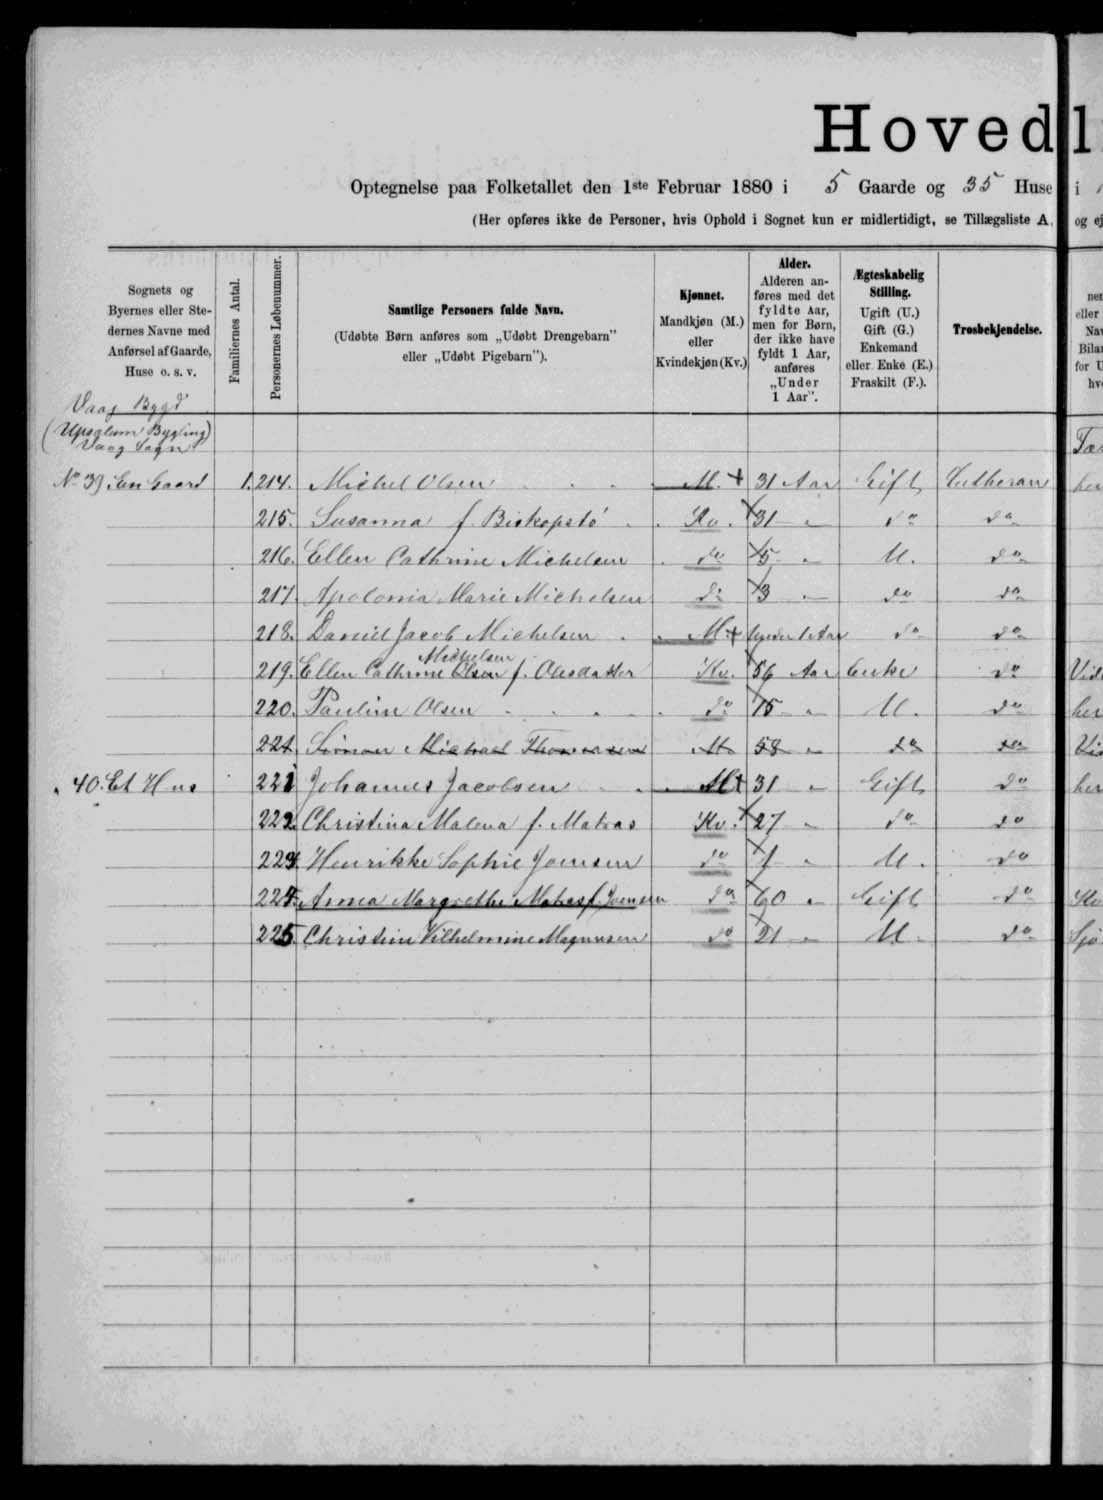 Hovedl
Optegnelse paa Folketallet den 1ste Februar 1880 i 5 Gaarde og 35 Huse i
(Her opføres ikke de Personer, hvis Ophold i Sognet kun er midlertidigt, se Tillægsliste A. og ej
Sognets og Byernes eller Stedernes Navne med Anførsel af Gaarde, Huse o. s. v.
Familiernes Antal.
Personernes Løbenummer.
Samtlige Personers fulde Navn.
(Udøbte Børn anføres som „Udøbt Drengebarn" eller „Udøbt Pigebarn").
Kjønnet.
Mandkjøn (M.) eller Kvindekjøn (Kv.)
Alder.
Alderen anføres med det fyldte Aar, men for Børn, der ikke have fyldt 1 Aar, anføres „Under 1 Aar".
Ægteskabelig Stilling.
Ugift (U.) Gift (G.) Enkemand eller Enke (E.) Fraskilt (F.).
Trosbekjendelse.
Vaag Bygd
(Upsalum Bygling)
Vaag Sogn
No 39 En Gaard 1. 214. Michel Olsen M. 31 Aar Gift Lutheran her
215. Susanna f. Biskopstó Kv. 31 " do do
216. Ellen Cathrine Michelsen do 5 " U. do
217. Apolonia Marie Michelsen do 3 " do do
218. Daniel Jacob Michelsen M. under 1 Aar do do
219. Ellen Cathrine Olsen Michelsen f. Olesdatter Kv. 56 Aar Enke do
220. Pauline Olsen do 15 " U. do her
221 Simon Michael Thomassen M 58 " do do
" 40. Et Hus 221 Johannes Jacobsen M 31 " Gift do her
222. Christina Malena f. Matras Kv. 27 " do do
223. Henrikke Sophie Joensen do 1 " U. do
224. Anna Margrethe Matras f. Joensen do 60 " Gift do
225. Christine Vilhelmine Magnussen do 21 " U. do